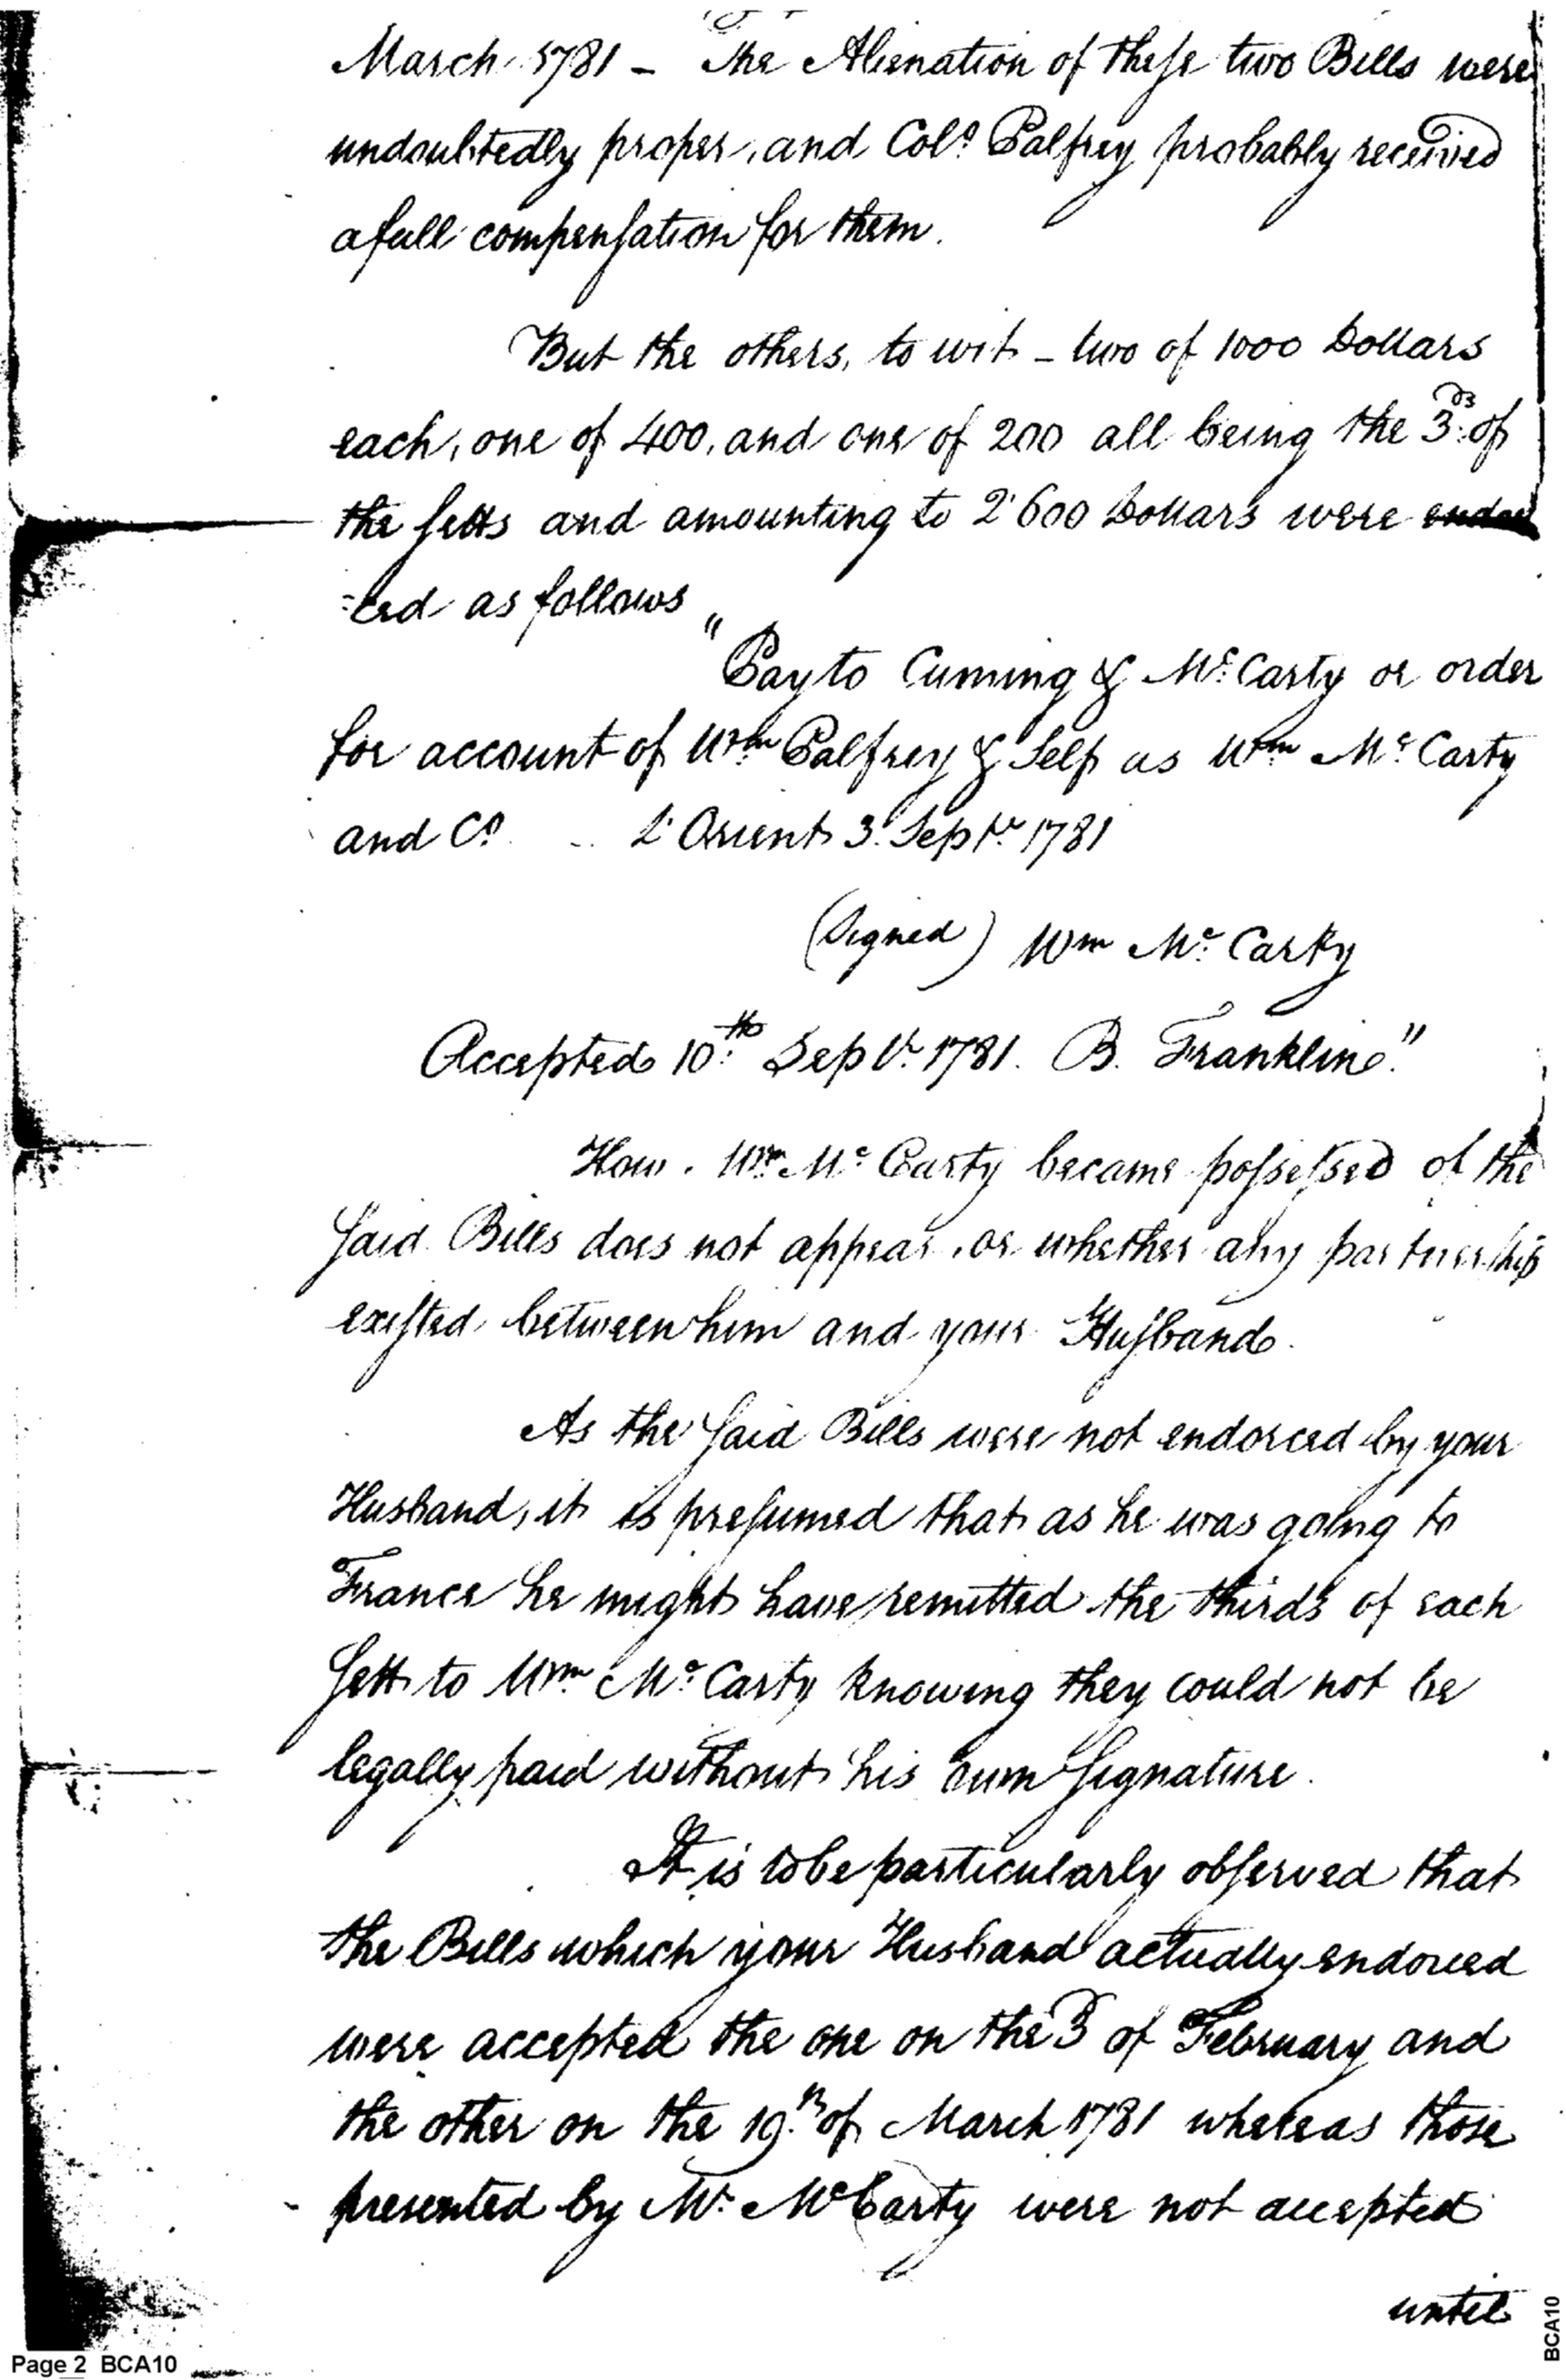 March 1781 – The Alienation of these two Bills were
undoubtedly proper, and Colo. Palfrey probably received
a full compensation for them.
But the others, to wit – two of 1000 Dollars
each, one of 400, and one of 200 all being the 3ds of
the setts and amounting to 2'600 Dollars were endor
=ced as follows
"Pay to Cuming & Mc. Carty or order
for account of Wm Palfrey & Self as Wm Mc. Carty
and Co. .. L'Orient 3. Septr. 1781
(Signed) Wm Mc. Carty
Accepted 10th. Septr. 1781. B. Franklin."
How Wm. Mc. Carty became possessed of the
said Bills does not appear, or whether any partnership
existed between him and your Husband.
As the said Bills were not endorced by your
Husband, it is presumed that as he was going to
France he might have remitted the thirds of each
sett to Wm. Mc. Carty knowing they could not be
legally paid without his own signature.
It is to be particularly observed that
the Bills which your Husband actually endorced
were accepted the one on the 3 of February and
the other on the 19th. of March 1781 whereas those
presented by Mr. McCarty were not accepted
until
Page 2 BCA10
BCA10